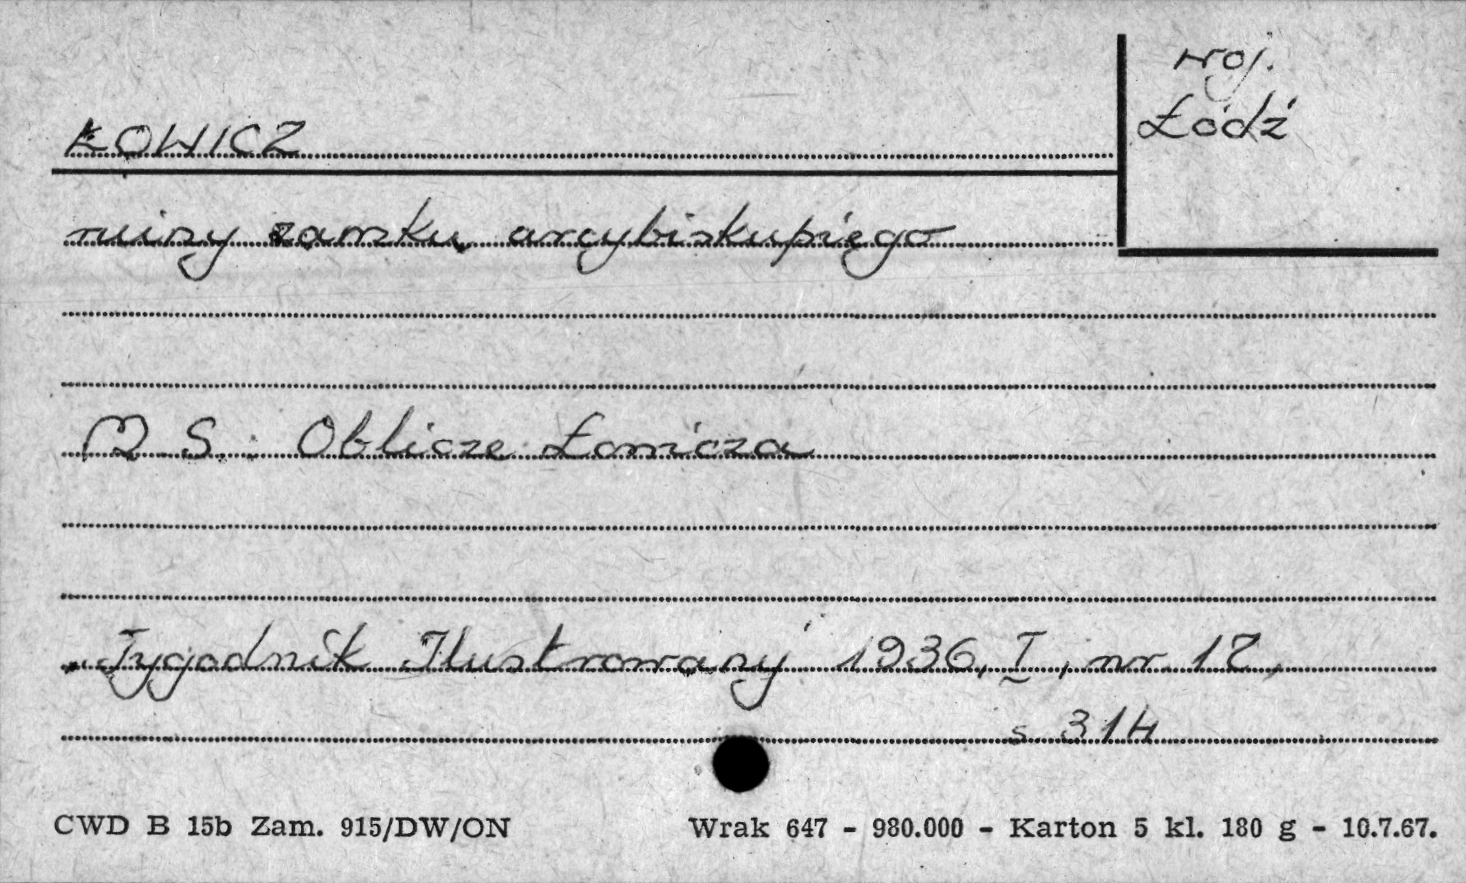 woj.
Łódź
ŁOWICZ
ruiny zamku arcybiskupiego
M. S.: Oblicze Łowicza
"Tygodnik Ilustrowany" 1936, I, nr. 17,
s 314
CWD B 15b Zam. 915/DW/ON
Wrak 647 - 980.000 - Karton 5 kl. 180 g - 10.7.67.